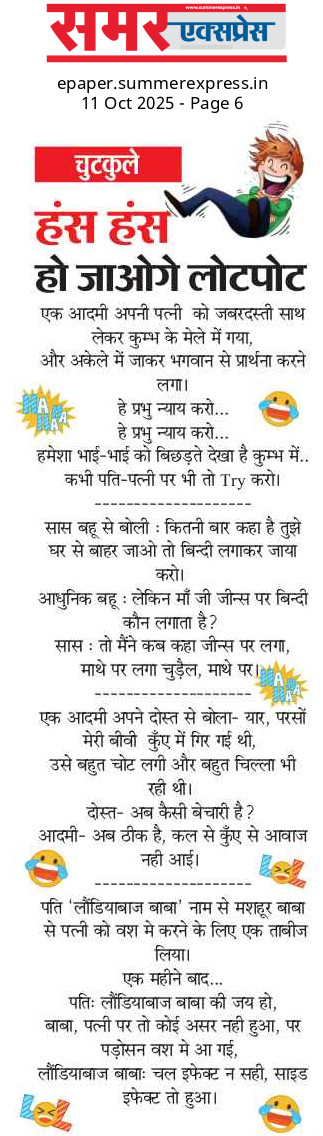 www.summerexpress.in
समर एक्सप्रेस
epaper.summerexpress.in
11 Oct 2025 - Page 6
चुटकुले
हंस हंस
हो जाओगे लोटपोट
एक आदमी अपनी पत्नी को जबरदस्ती साथ
लेकर कुम्भ के मेले में गया,
और अकेले में जाकर भगवान से प्रार्थना करने
लगा।
हे प्रभु न्याय करो...
हे प्रभु न्याय करो...
हमेशा भाई-भाई को बिछड़ते देखा है कुम्भ में..
कभी पति-पत्नी पर भी तो Try करो।
--------------------
सास बहू से बोली : कितनी बार कहा है तुझे
घर से बाहर जाओ तो बिन्दी लगाकर जाया
करो।
आधुनिक बहू : लेकिन माँ जी जीन्स पर बिन्दी
कौन लगाता है?
सास : तो मैंने कब कहा जीन्स पर लगा,
माथे पर लगा चुड़ैल, माथे पर।
--------------------
एक आदमी अपने दोस्त से बोला- यार, परसों
मेरी बीवी कुँए में गिर गई थी,
उसे बहुत चोट लगी और बहुत चिल्ला भी
रही थी।
दोस्त- अब कैसी बेचारी है?
आदमी- अब ठीक है, कल से कुँए से आवाज
नही आई।
--------------------
पति 'लौंडियाबाज बाबा' नाम से मशहूर बाबा
से पत्नी को वश मे करने के लिए एक ताबीज
लिया।
एक महीने बाद...
पतिः लौंडियाबाज बाबा की जय हो,
बाबा, पत्नी पर तो कोई असर नही हुआ, पर
पड़ोसन वश मे आ गई,
लौंडियाबाज बाबाः चल इफेक्ट न सही, साइड
इफेक्ट तो हुआ।
HA HA HAA
HA HA HAA
LOL
LOL